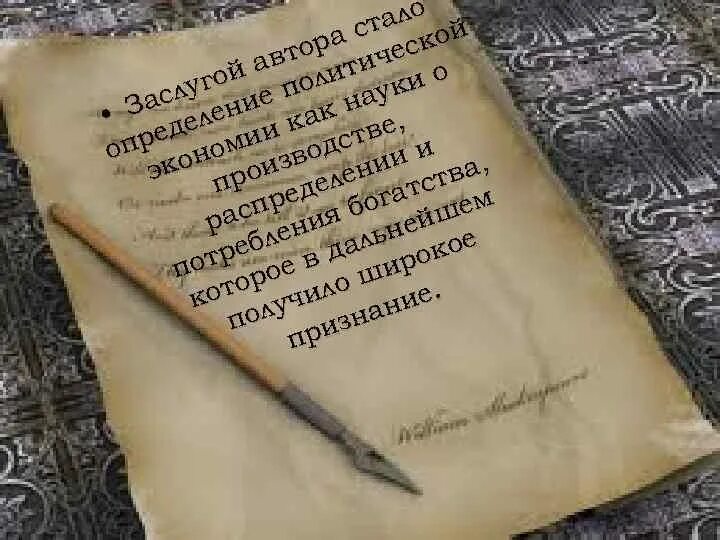 • Заслугой автора стало
определение политической
экономии как науки о
производстве,
распределении и
потребления богатства,
которое в дальнейшем
получило широкое
признание.
William Shakespeare